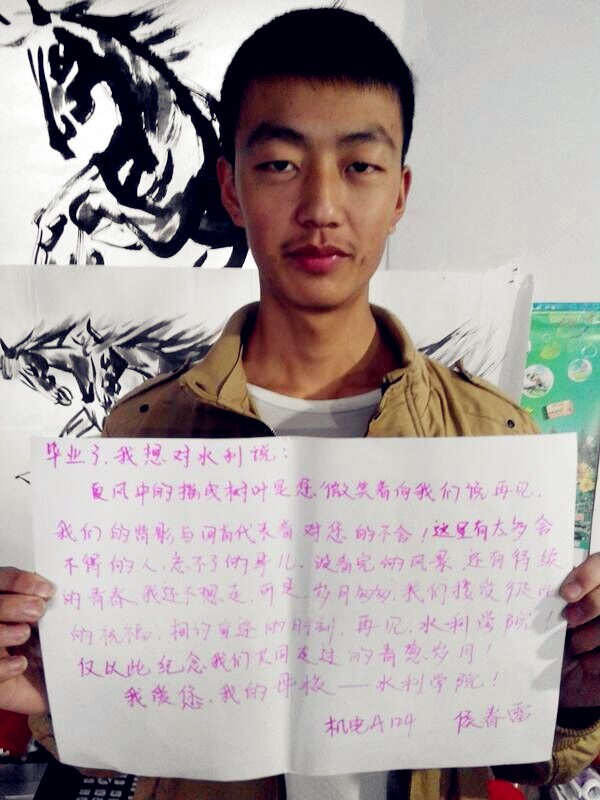 毕业了,我想对水利说:
夏风中的摇曳树叶是您微笑着向我们说再见,
我们的背影与回首代表着对您的不舍!这里有太多舍
不得的人,忘不了的事儿,没看完的风景,还有待续
的青春,我还不想走,可是,岁月匆匆,我们接受彼此
的祝福,相约重逢的时刻,再见,水利学院!
仅以此纪念我们共同走过的青葱岁月!
我爱您,我的母校——水利学院!
机电A124 侯春雷